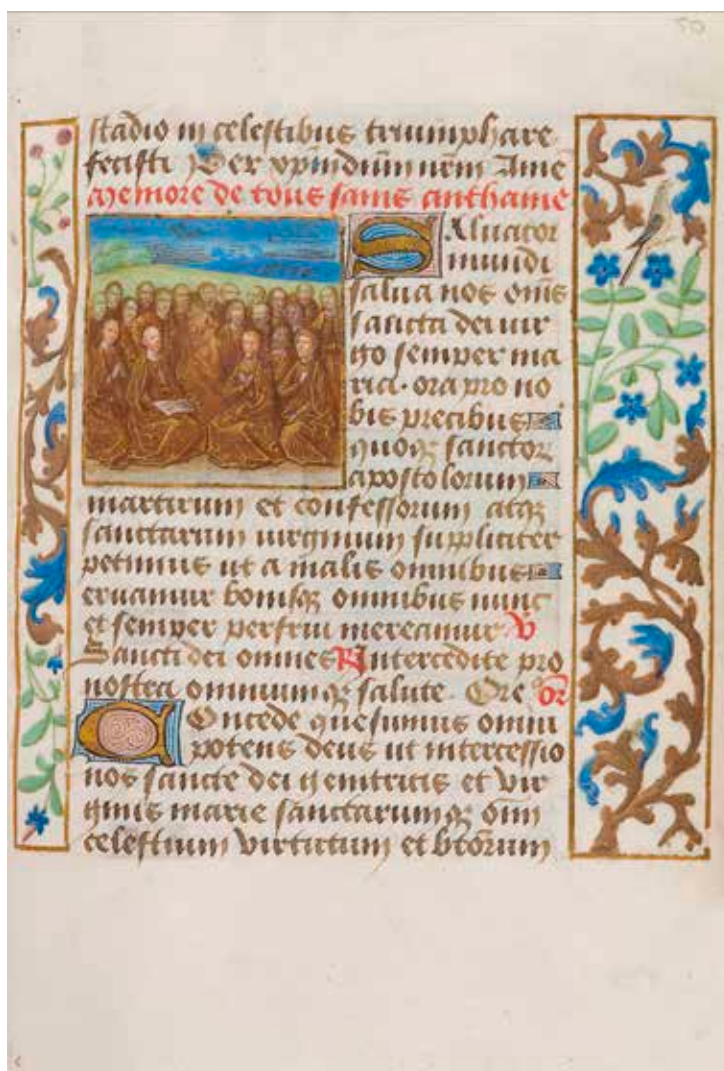 50
stadio in celestibus triumphare
fecisti Per xp̄m dūm nr̄m Ame
Memore de tous sains anthaine
Saluator
mundi
salua nos om̄s
sancta dei uir
go semper ma
ria . ora pro no
bis precibus
quoqꝫ sanctoꝝ
apostolorum
martirum et confessorum atqꝫ
sanctarum uirginum suppliciter
petimus ut a malis omnibus
eruamur bonisqꝫ omnibus nunc
et semper perfrui mereamur V
Sancti dei omnes R Intercedite pro
nostra omniumqꝫ salute . Ore or
Concede quesumus omni
potens deus ut intercessio
nos sancte dei genitricis et vir
ginis marie sanctarumqꝫ om̄i
celestium virtutum et bt̄orum